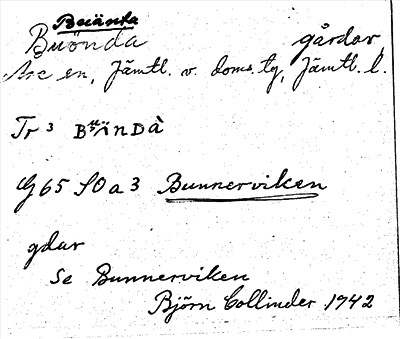 Buänta
Buönda gårdar
Åre sn, Jämtl. v. doms. tg, Jämtl. l.
Tr 3
G65 SO a 3 Bunnerviken
gdar
se Bunnerviken
Björn Collinder 1942